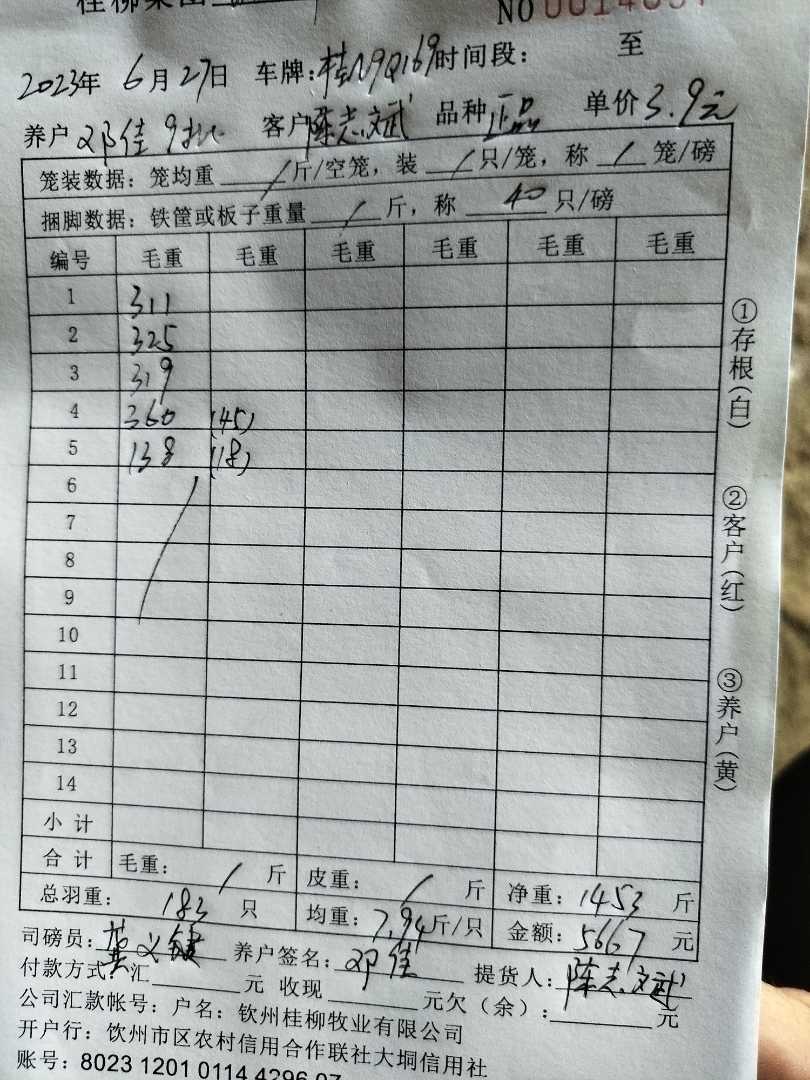 桂柳集团
NO 0014
2023年 6月27日 车牌:桂N9Q169 时间段: 至
养户 邓佳 客户 陈志斌 品种 正品 单价 3.9元
笼装数据: 笼均重 / 斤/空笼, 装 / 只/笼, 称 / 笼/磅
捆脚数据: 铁筐或板子重量 / 斤, 称 40 只/磅
编号 毛重 毛重 毛重 毛重 毛重 毛重
1 311
2 325
3 319
4 360 (45)
5 138 (18)
6
7
8
9
10
11
12
13
14
小计
合计 毛重: / 斤 皮重: / 斤 净重: 1453 斤
总羽重: 183 只 均重: 7.94斤/只 金额: 5667 元
司磅员: 黄义键 养户签名: 邓佳 提货人: 陈志斌
付款方式: 汇 元 收现 元欠(余): 元
公司汇款帐号: 户名: 钦州桂柳牧业有限公司
开户行: 饮州市区农村信用合作联社大垌信用社
账号: 8023 1201 0114 4296 07
①存根(白)
②客户(红)
③养户(黄)